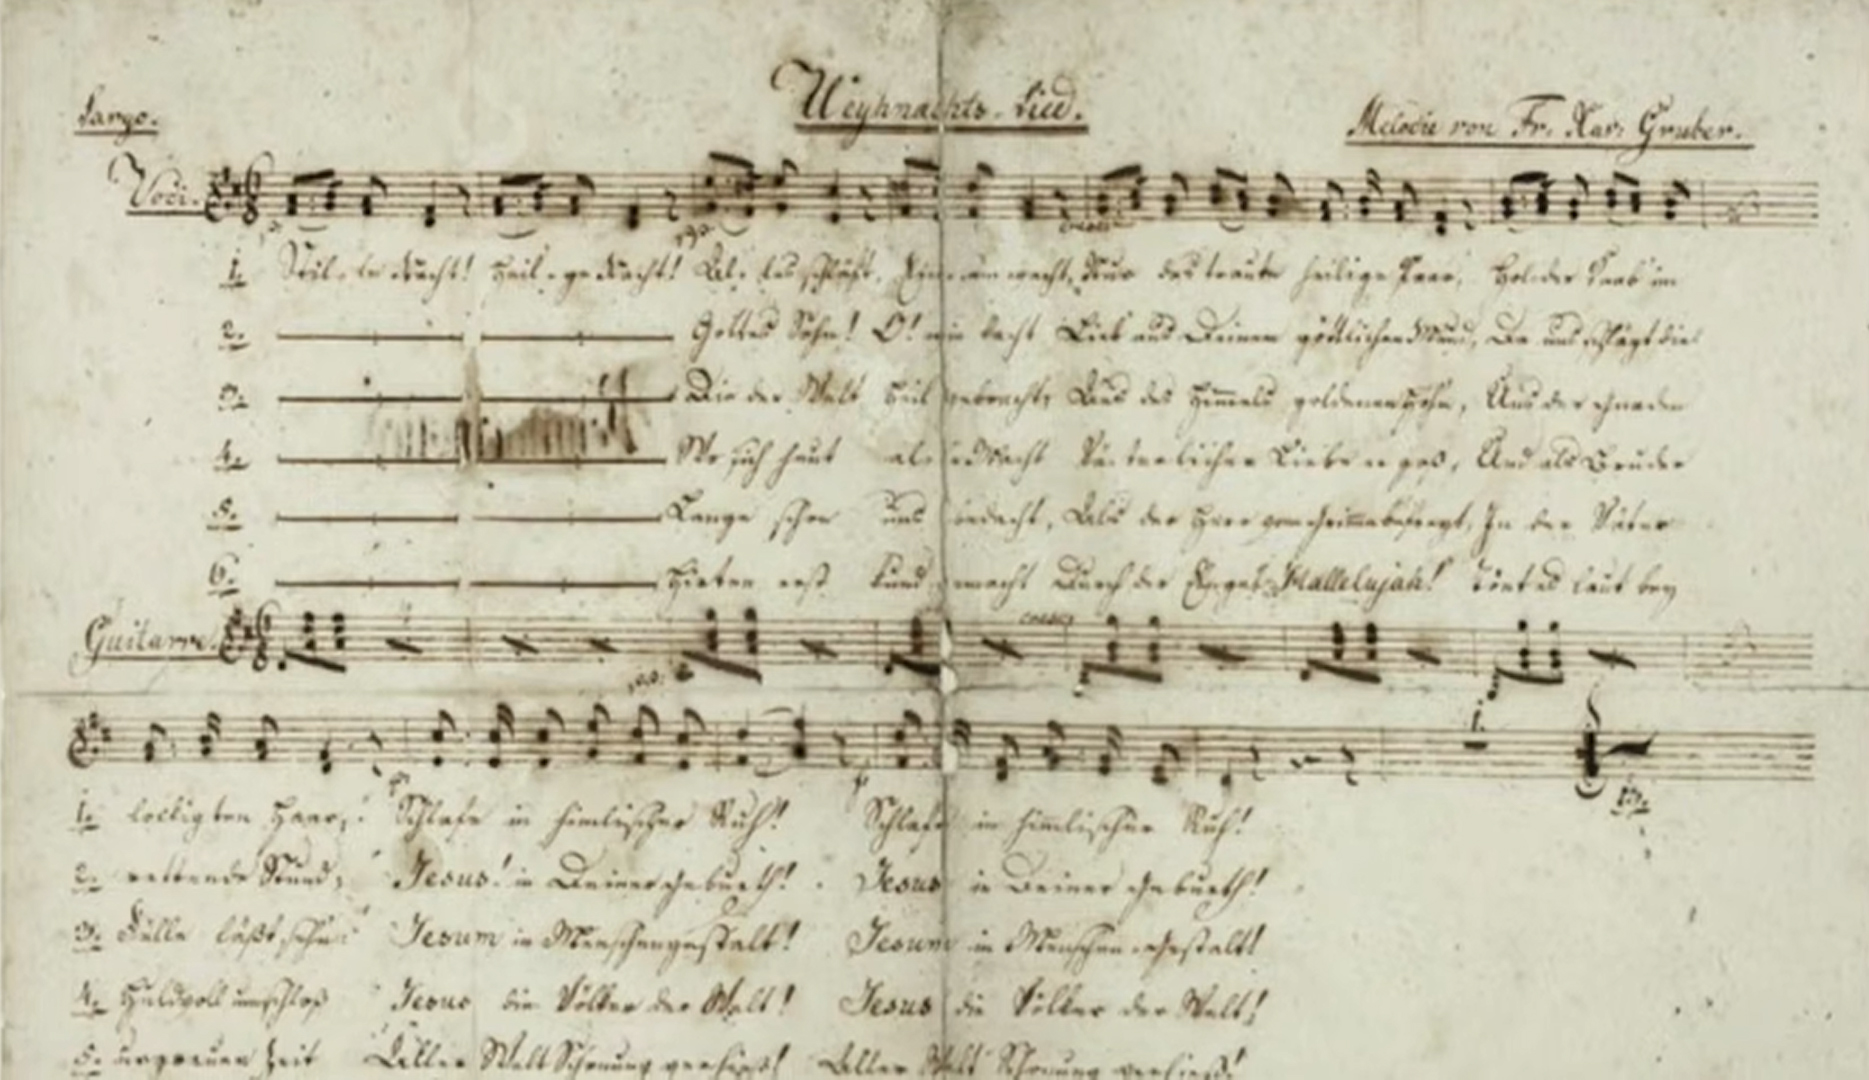 Weyhnachts-Lied.
Largo. Melodie von Fr. Xav. Gruber.
Voci.
1. Stil-le Nacht! Heil-ge Nacht! Al-les schläft, Einsam wacht, Nur das traute heilige Paar, Holder Knab' im
2. Gottes Sohn! O! wie lacht Lieb aus Deinem göttlichen Mund, Da uns schlägt die
3. Die der Welt Heil gebracht, Aus des Himmels goldenen Höhn, Aus der Gnaden
4. Wo sich heut alle Macht Väterlicher Liebe ergoß, Und als Bruder
5. Lange schon uns bedacht, Als der Herr vom Grimme befreyt, In der Väter
6. Hirten erst kund gemacht Durch der Engel Hallelujah! Tönt es laut bey
Guitarre.
cresc
1. lockigten Haar, Schlafe in himlischer Ruh! Schlafe in himlischer Ruh!
2. rettende Stund, Jesus! in Deiner Geburth! Jesus in Deiner Geburth!
3. Fülle läßt sehn Jesum in Menschengestalt! Jesum in Menschen-Gestalt!
4. Huldvoll umschloß Jesus die Völker der Welt! Jesus die Völker der Welt!
5. urgrauer Zeit Aller Welt Schonung verhieß! Aller Welt Schonung verhieß!